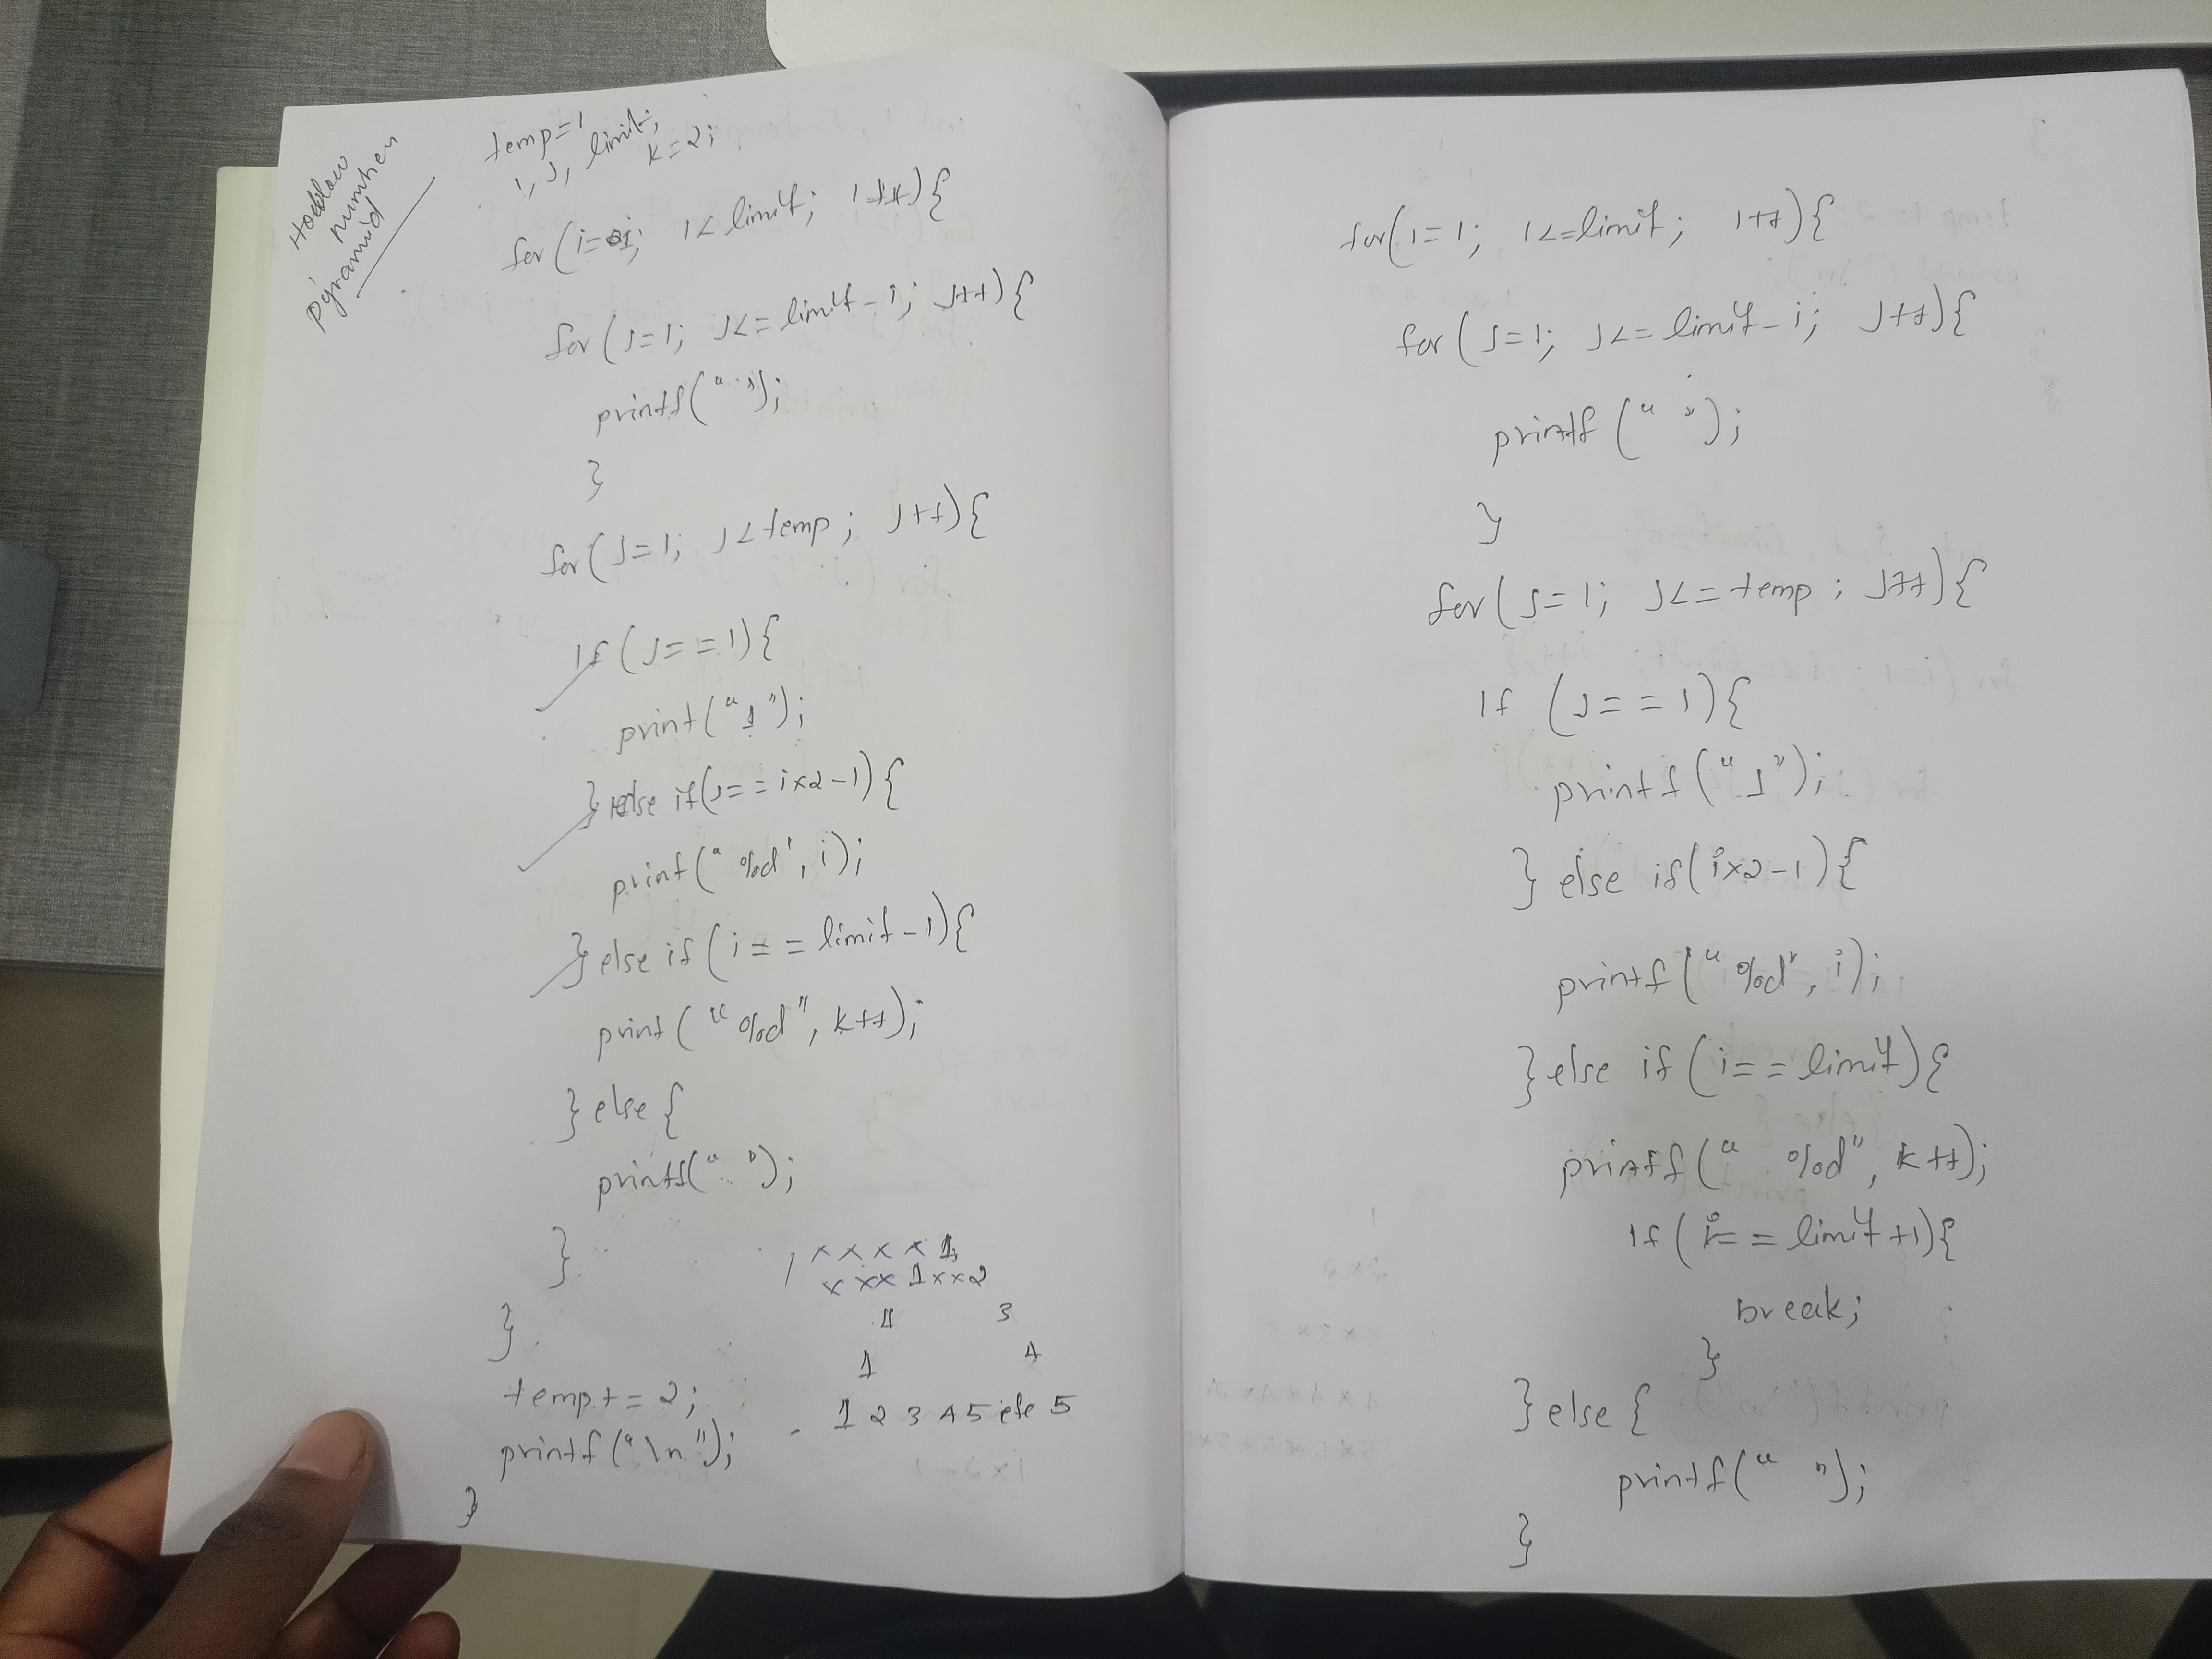 Hollow
number
Pyramid
temp=1
i, j, limit,
k=2;
for (i=1; i< limit; i++){
for (j=1; j<= limit-i; j++){
printf(" ");
}
for (j=1; j< temp; j++){
if (j==1){
print("1");
} else if(j==i×2-1){
print("%d", i);
} else if (i==limit-1){
print("%d", k++);
} else {
printf(" ");
}
}
temp+=2;
printf("\n");
}
x x x x 1
x x x 1 x x 2
1 3
1 4
1 2 3 4 5 etc 5
for(i=1; i<=limit; i++){
for (j=1; j<=limit-i; j++){
printf (" ");
}
for (j=1; j<=temp; j++){
if (j==1){
printf("1");
} else if(i×2-1){
printf("%d", i);
} else if (i==limit){
printf(" %d", k++);
if (k==limit+1){
break;
}
} else {
printf(" ");
}